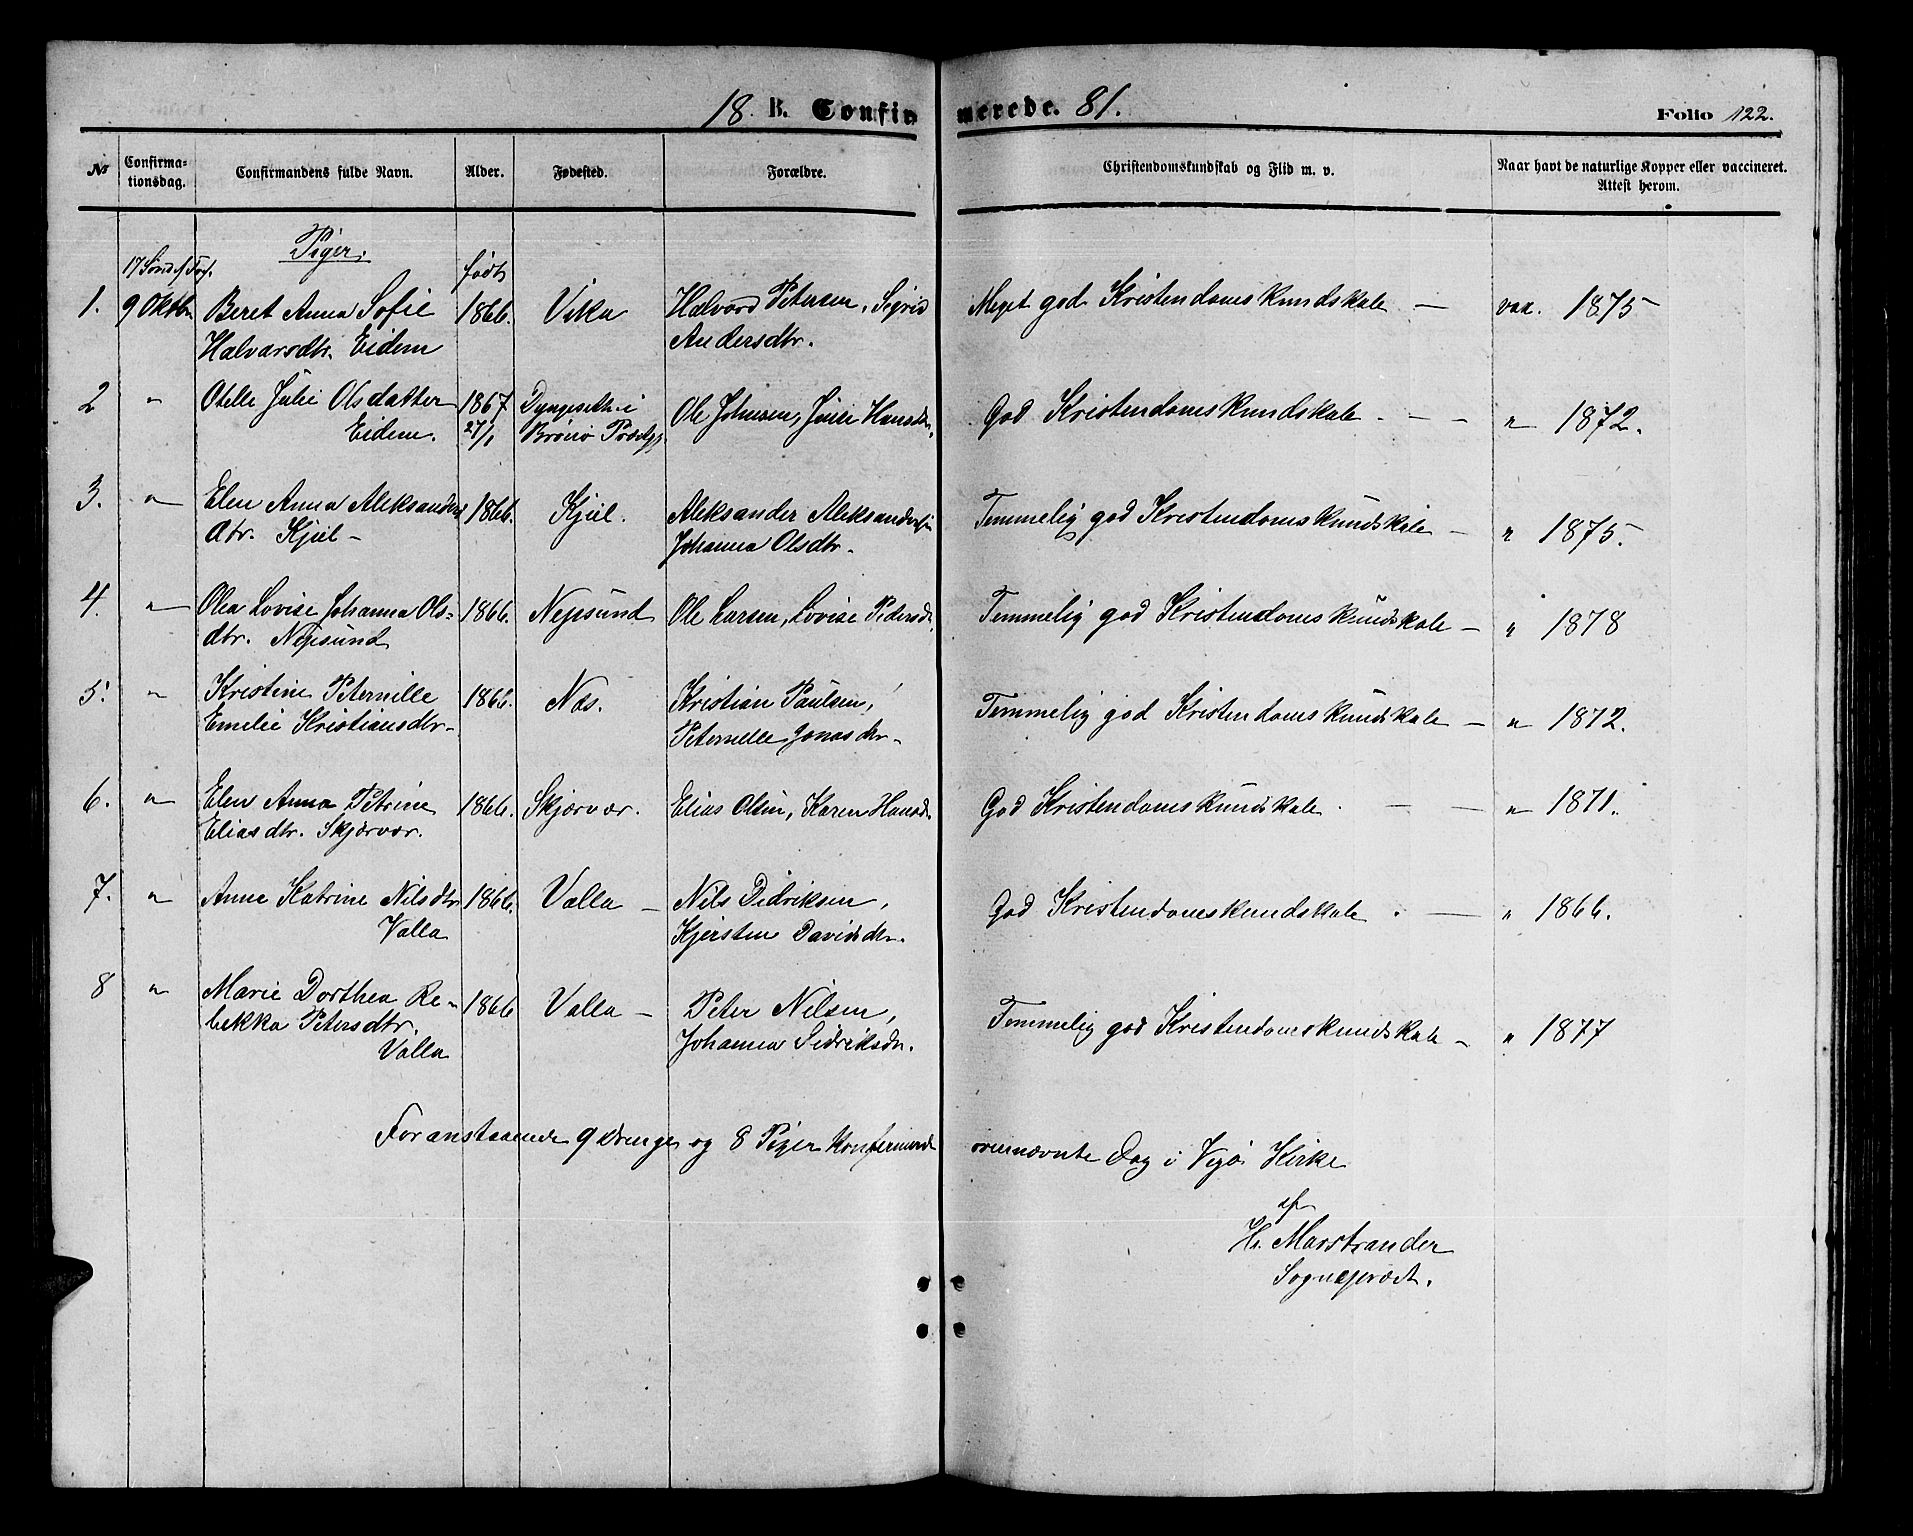 18. B. Confirmerede. 81.
Folio 122.
No
Confirmationsdag.
Confirmandens fulde Navn.
Alder.
Fødested.
Forældre.
Christendomskundskab og Flid m. v.
Naar havt de naturlige Kopper eller vaccineret. Attest herom.
Piger.
17 Sønd. f. Tref.
født
1. 9 Oktbr. Beret Anna Sofie 1866. Vika Halvord Petersen, Sigrid Meget god Kristendomskundskab — vax. 1875
Halvarsdtr. Eidem Andersdtr.
2 " Otelle Julie Olsdatter 1867 Dyngeseth i Ole Johnsen, Julie Hansdtr. God Kristendomskundskab. — — " 1872.
Eidem. 27/1 Brönö Prestgj.
3. " Elen Anna Aleksanders 1866. Kjul. Aleksander Aleksandersen Temmelig god Kristendomskundskab — " 1875.
dtr. Kjul — Johanna Olsdtr.
4. " Olea Lovise Johanna Ols- 1866. Nepsund Ole Larsen, Lovise Pedersdtr. Temmelig god Kristendomskundskab — " 1878
dtr. Nepsund
5. " Kristine Peternille 1866. Nes. Kristian Paulsen, Temmelig god Kristendomskundskab — " 1872.
Emelie Kristiansdtr. Peternelle Jonasdtr.
6. " Elen Anna Petrine 1866. Skjærvær. Elias Olsen, Karen Hansdtr. God Kristendomskundskab. — — " 1871.
Eliasdtr. Skjærvær.
7. " Anne Katrine Nilsdtr. 1866. Valla — Nils Didriksen, God Kristendomskundskab. — " 1866.
Valla Kjersten Davidsdtr.
8 " Marie Dorthea Re- 1866 Valla — Peter Nilsen, Temmelig god Kristendomskundskab — " 1877
bekka Petersdtr. Johanna Didriksdtr.
Valla
Foranstaaende 9 Drenge og 8 Piger Konfirmerede ovennævnte Dag i Vegø Kirke
af
H. Marstrander
Sogneprest.